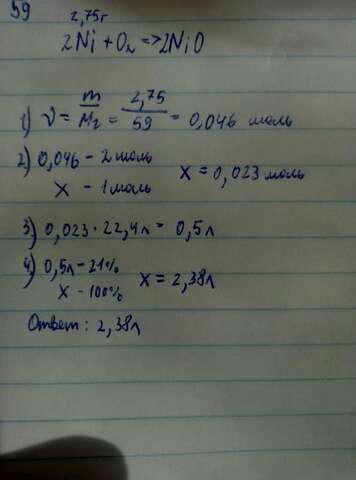 59
2,75г
2Ni + O₂ => 2NiO
1) ν = m/Mr = 2,75/59 = 0,046 моль
2) 0,046 - 2 моль
x - 1 моль
x = 0,023 моль
3) 0,023 · 22,4л = 0,5л
4) 0,5л - 21%
x - 100%
x = 2,38л
Ответ: 2,38л